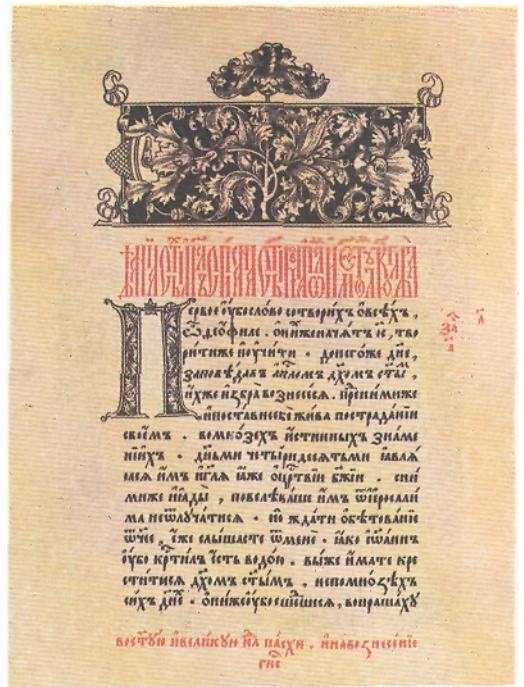 Первое ѹ҆бо слово сотвори́хъ ѡ҆ всѣ́хъ ,
ѽ ѳео́филе . ѡ҆ ни́хже нача́тъ і҆с , тво
ри́ти же и҆ ѹ҆чи́ти . до него́же дн҃е ,
заповѣ́давъ а҆пⷭ҇ломъ дх҃омъ ст҃ы́мъ ,
и҆́хже и҆збра̀ вознесе́сѧ . пред ни́миже
и҆ поста́ви себѐ жи́ва по страда́нїи
свое́мъ . во мно́зехъ и҆́стинныхъ зна́ме
нїихъ . дньмѝ четы́ридесѧтьми ꙗ҆влѧ́
ꙗсѧ и҆̀мъ и҆ глѧ ꙗ҆́же ѡ҆ црⷭ҇твїи бж҃їи . сни́
миже и҆ ꙗ҆ды̀ , повелѣва́ше и҆̀мъ ѿ і҆еросали́
ма не ѿлуча́тисѧ . но жда́ти ѡ҆бѣтова́нїе
ѿч҃ее , є҆́же слы́шасте ѿ менѐ . ꙗ҆́ко і҆ѡа́ннъ
ѹ҆́бо крⷭ҇ти́лъ є҆́сть водо́ю . вы́же и҆́мате кре
сти́тисѧ дх҃омъ ст҃ы́мъ , не по мно́зѣхъ
си́хъ дн҃ехъ . ѡ҆ни́же ѹ҆́бо сше́дшесѧ , вопраша́хѹ
въ ст҃ѹ́ю и҆ вели́кѹю нⷣлю па́схи , и҆ на вознесе́нїе
гнⷭ҇е